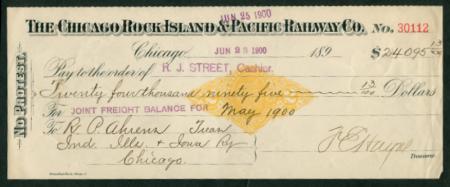 JUN 25 1900
THE CHICAGO ROCK ISLAND & PACIFIC RAILWAY CO. No. 30112
Chicago JUN 23 1900 189 $24095 13/100
Pay to the order of R. J. STREET, Cashier.
Twenty four thousand ninety five 13/100 Dollars
For JOINT FREIGHT BALANCE FOR May 1900
To R. P. Ahrens Treas
Ind. Ills. & Iowa Ry
Chicago.
Treasurer
NO PROTEST.